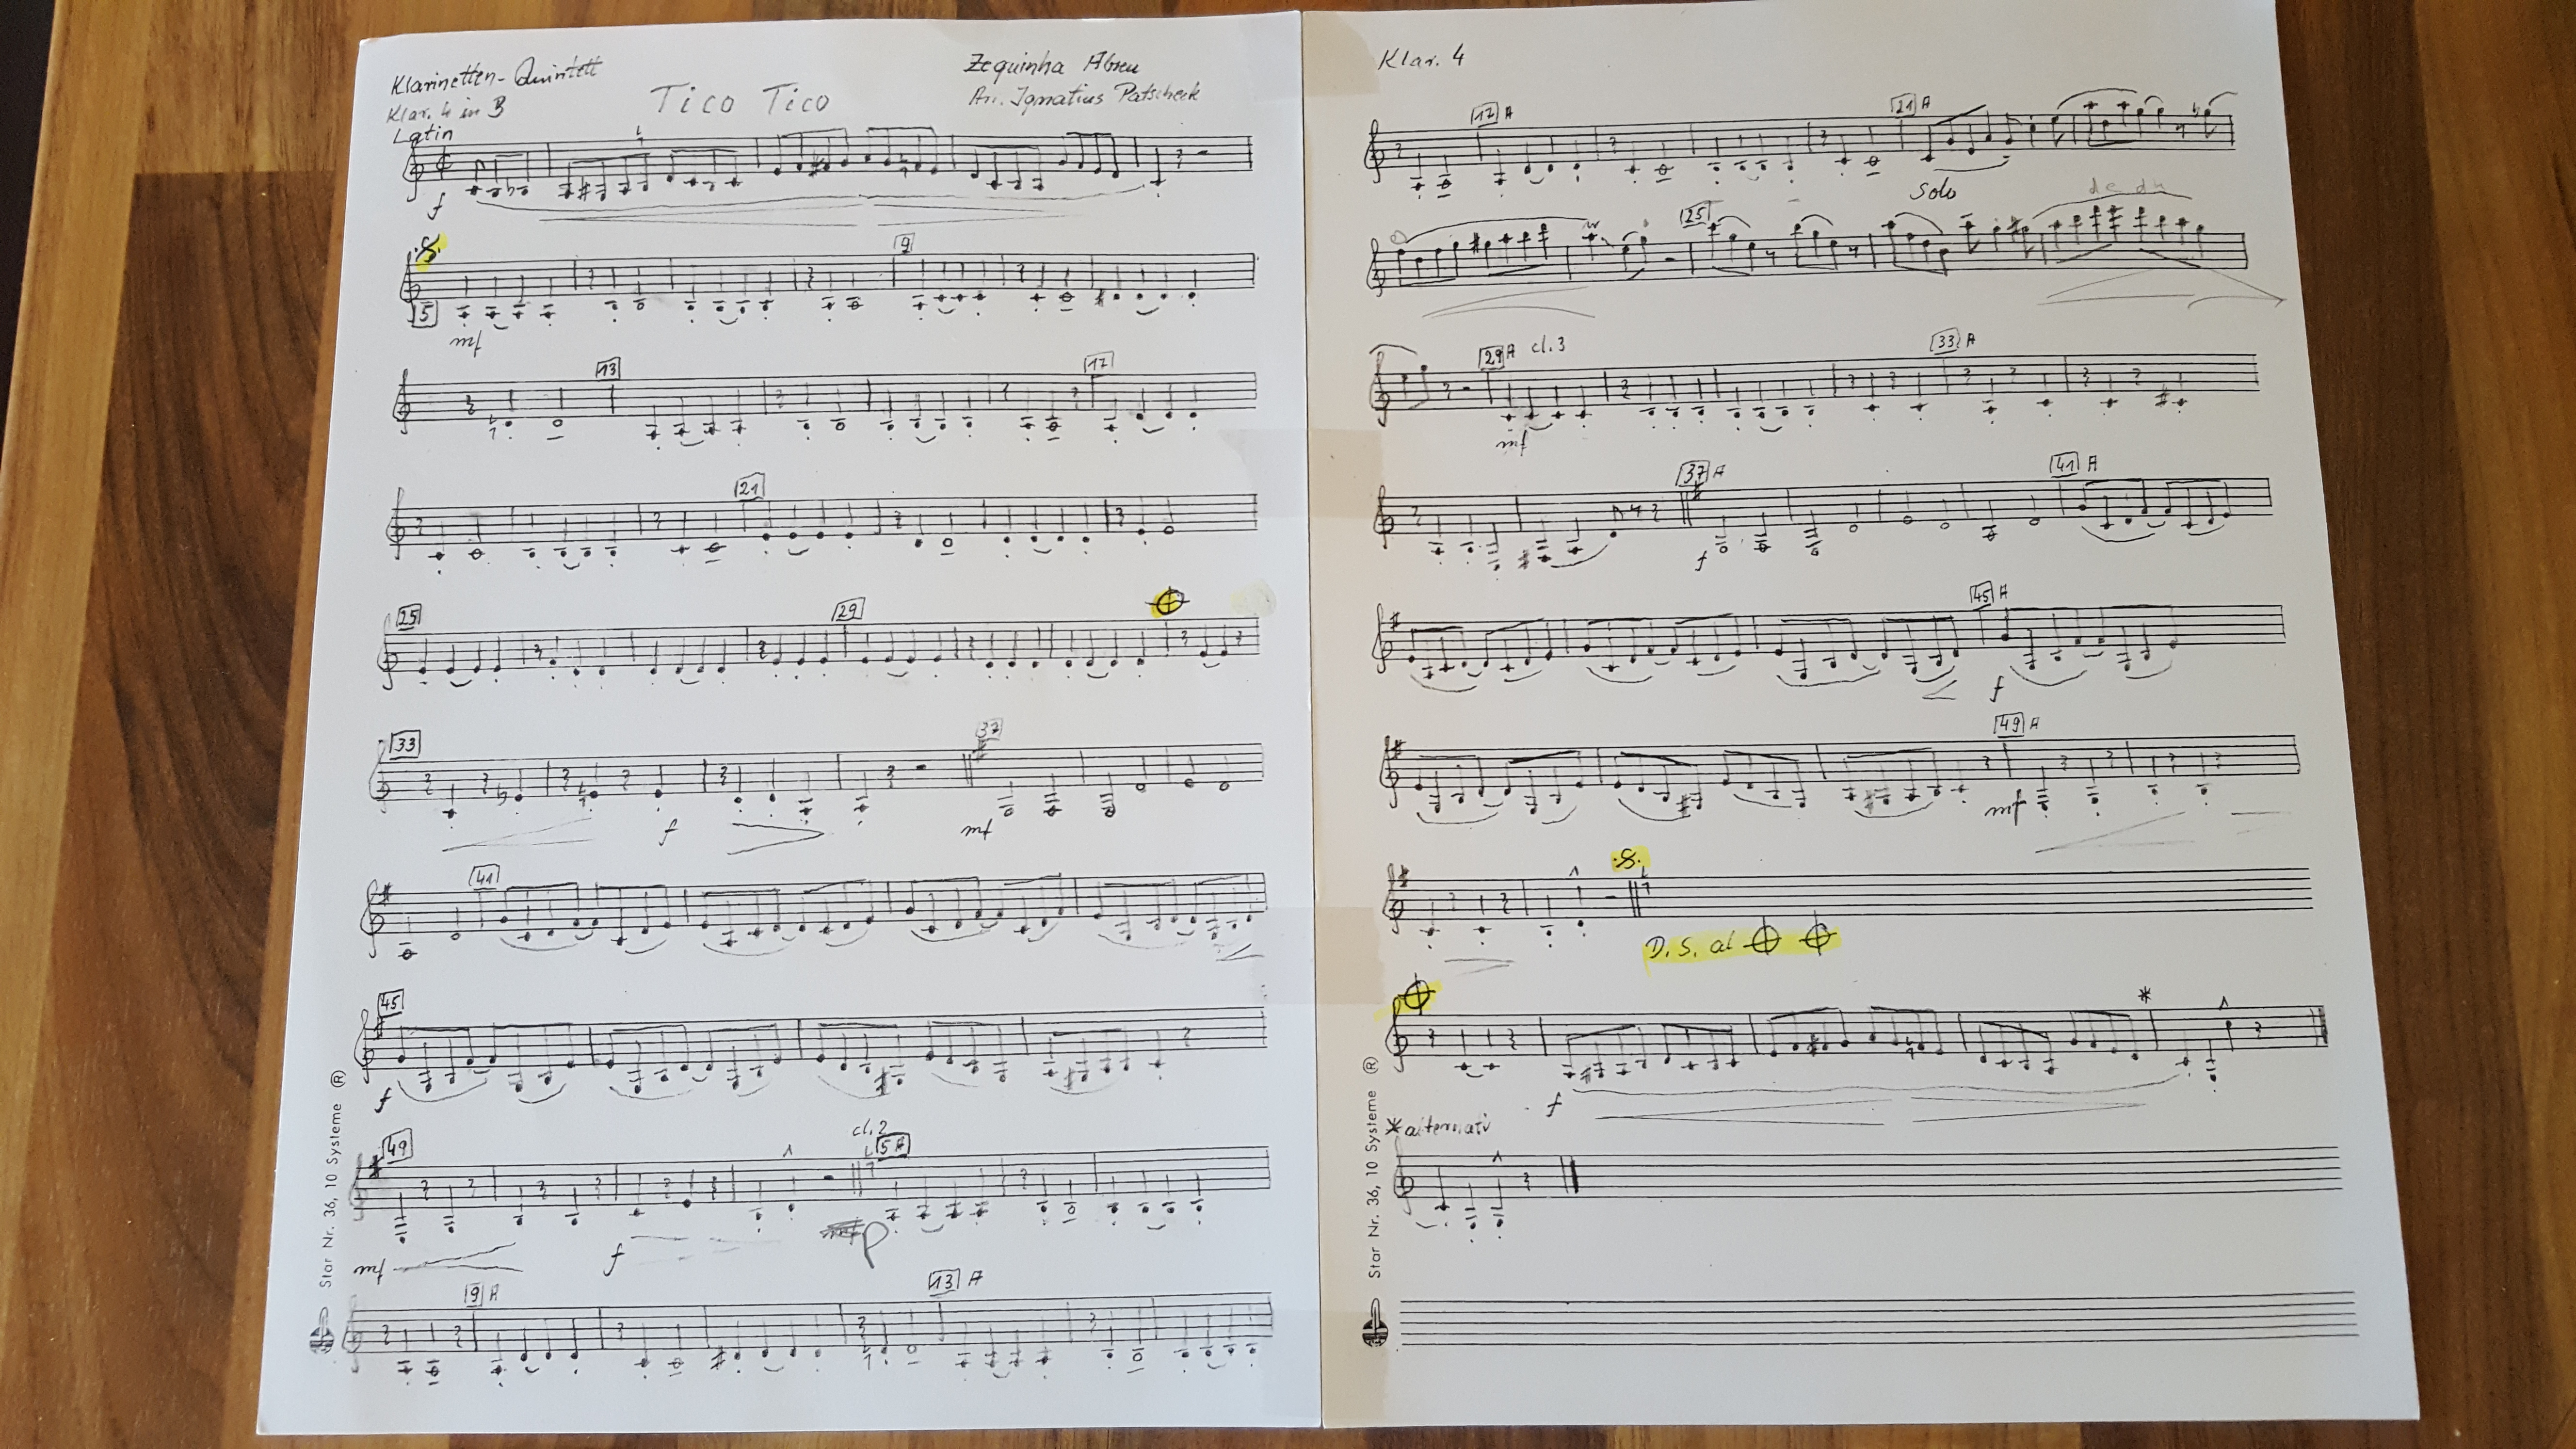 Klarinetten-Quintett
Klar. 4 in B
Latin
Tico Tico
Zequinha Abreu
Arr. Ignatius Patscheck
f
5
9
mf
13
17
21
25
29
33
37
f
mf
41
45
f
49
cl. 2
5 A
mf
f
p
9 A
13 A
Star Nr. 36, 10 Systeme ®
Klar. 4
17 A
21 A
Solo
25
29 A cl. 3
33 A
mf
37 A
41 A
f
45 A
f
49 A
mf
D. S. al
f
* alternativ
Star Nr. 36, 10 Systeme ®